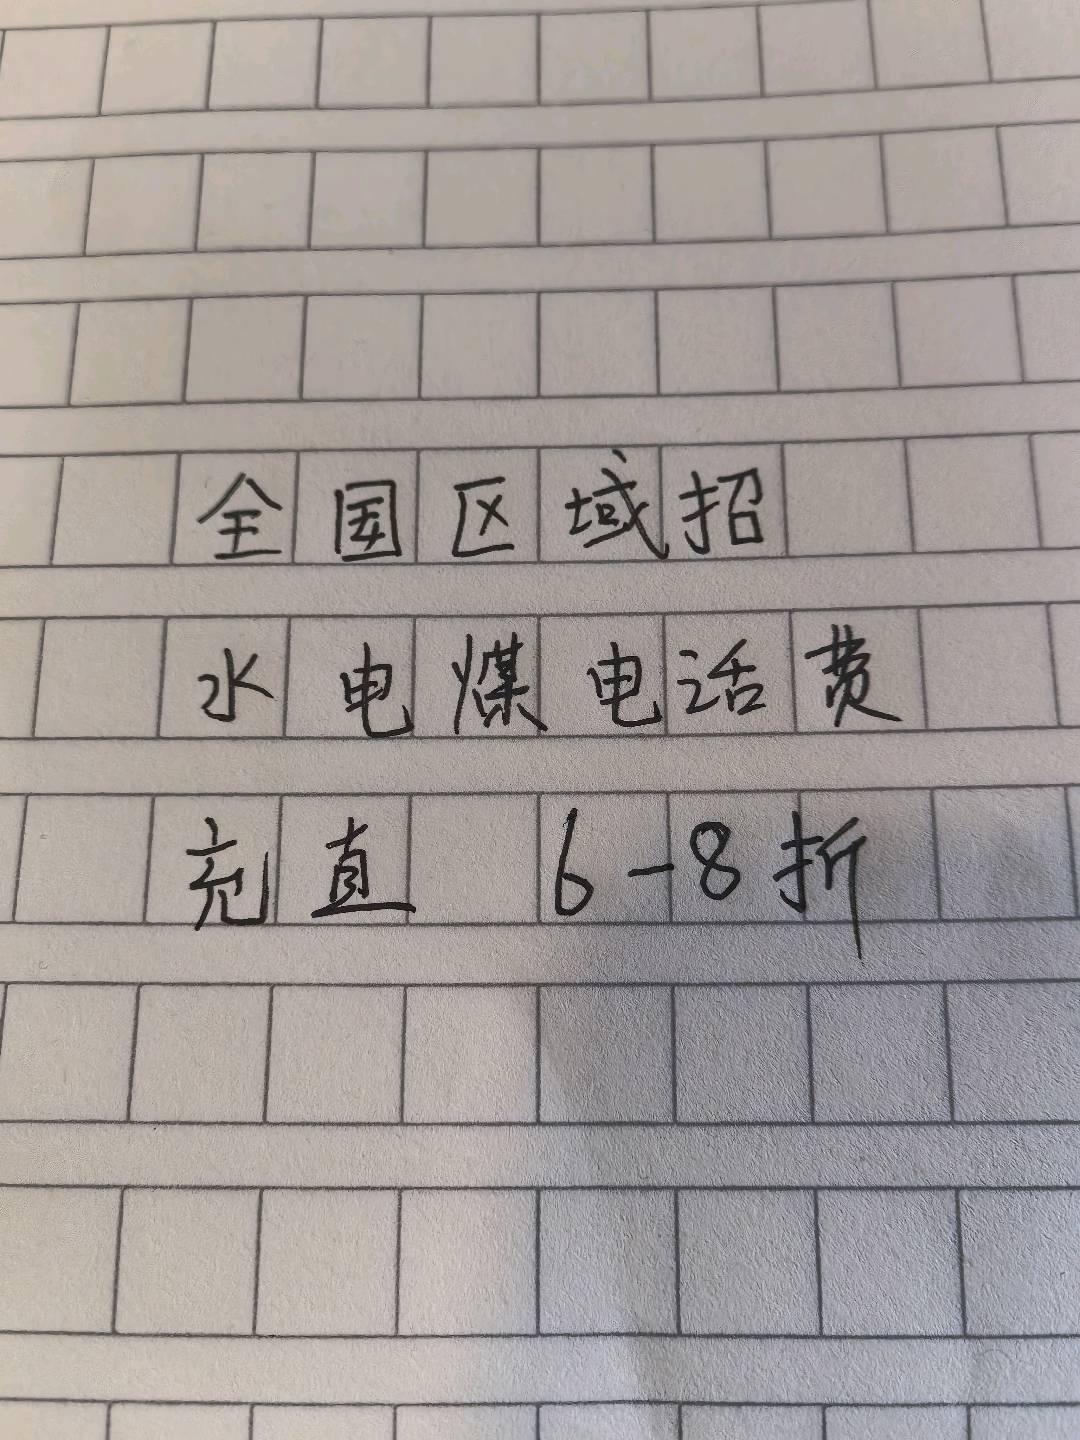 全国区域招
水电煤电话费
充直 6-8折